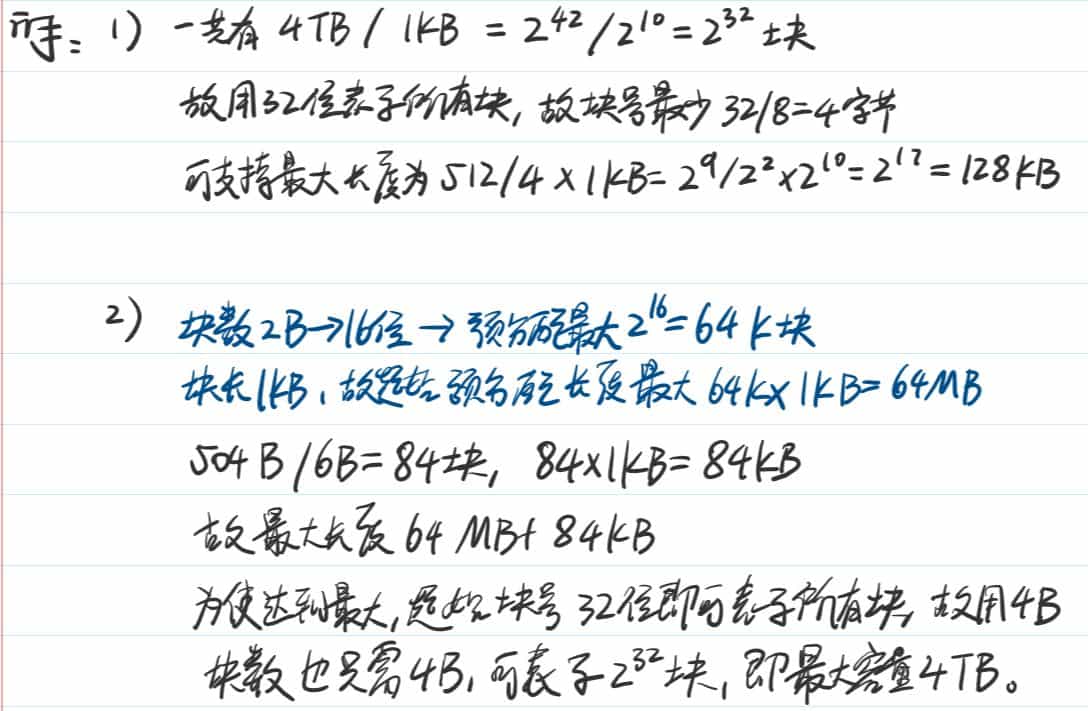 解: 1) 一共有 4TB / 1KB = 2^42/2^10 = 2^32 块
故用32位表示所有块, 故块号最少 32/8=4字节
可支持最大长度为 512/4 × 1KB = 2^9/2^2×2^10 = 2^17 = 128KB
2) 块数2B→16位 → 预分配最大 2^16 = 64 K 块
块长1KB, 故起始预分配长度最大 64K×1KB = 64MB
504 B /6B = 84块, 84×1KB = 84KB
故最大长度 64 MB+ 84KB
为使达到最大, 起始块号 32位即可表示所有块, 故用4B
块数也只需4B, 可表示2^32块, 即最大容量4TB。